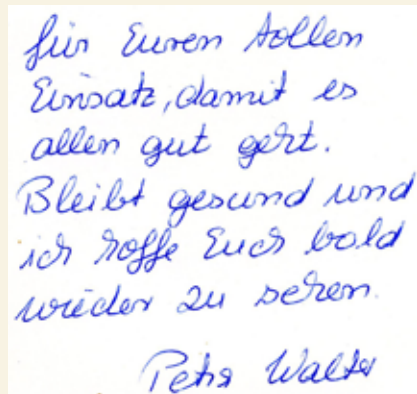 für Euren tollen
Einsatz, damit es
allen gut geht.
Bleibt gesund und
ich hoffe Euch bald
wieder zu sehen.
Petra Walter